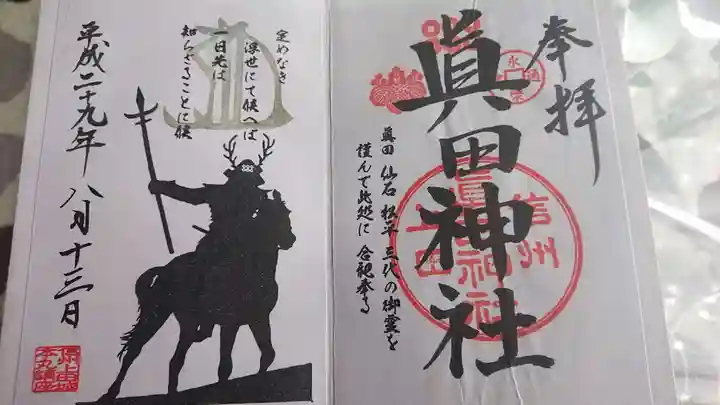 奉拝
眞田神社
眞田 仙石 松平 三代の御霊を
謹んで此処に 合祀奉る
信州
上田
眞田神社
定めなき
浮世にて候へば
一日先は
知らざることに候
平成二十九年 八月十三日